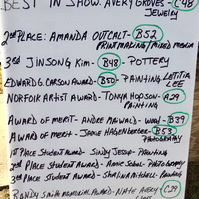 BEST IN SHOW: AVERY GROVES - C48
JEWELRY
2nd PLACE: AMANDA OUTCALT - B52
PRINTMAKING/MIXED MEDIA
3rd JINSONG KIM - B48 - POTTERY
EDWARD G. CARSON AWARD - B50 - PAINTING LETITIA LEE
NORFOLK ARTIST AWARD - TONYA HOPSON - A29
PAINTING
AWARD OF MERIT - ANDRE MAIWALD - WOOD - B39
AWARD OF MERIT - JAMIE HAGENBERGER - B53
PHOTOGRAPHY
1st PLACE STUDENT AWARD - SINDY JESUP - PAINTING
2nd PLACE STUDENT AWARD - ANNIE - PHOTOGRAPHY
3rd PLACE STUDENT AWARD - PAINTING
RANDY SMITH MEMORIAL AWARD - NATE AVERY